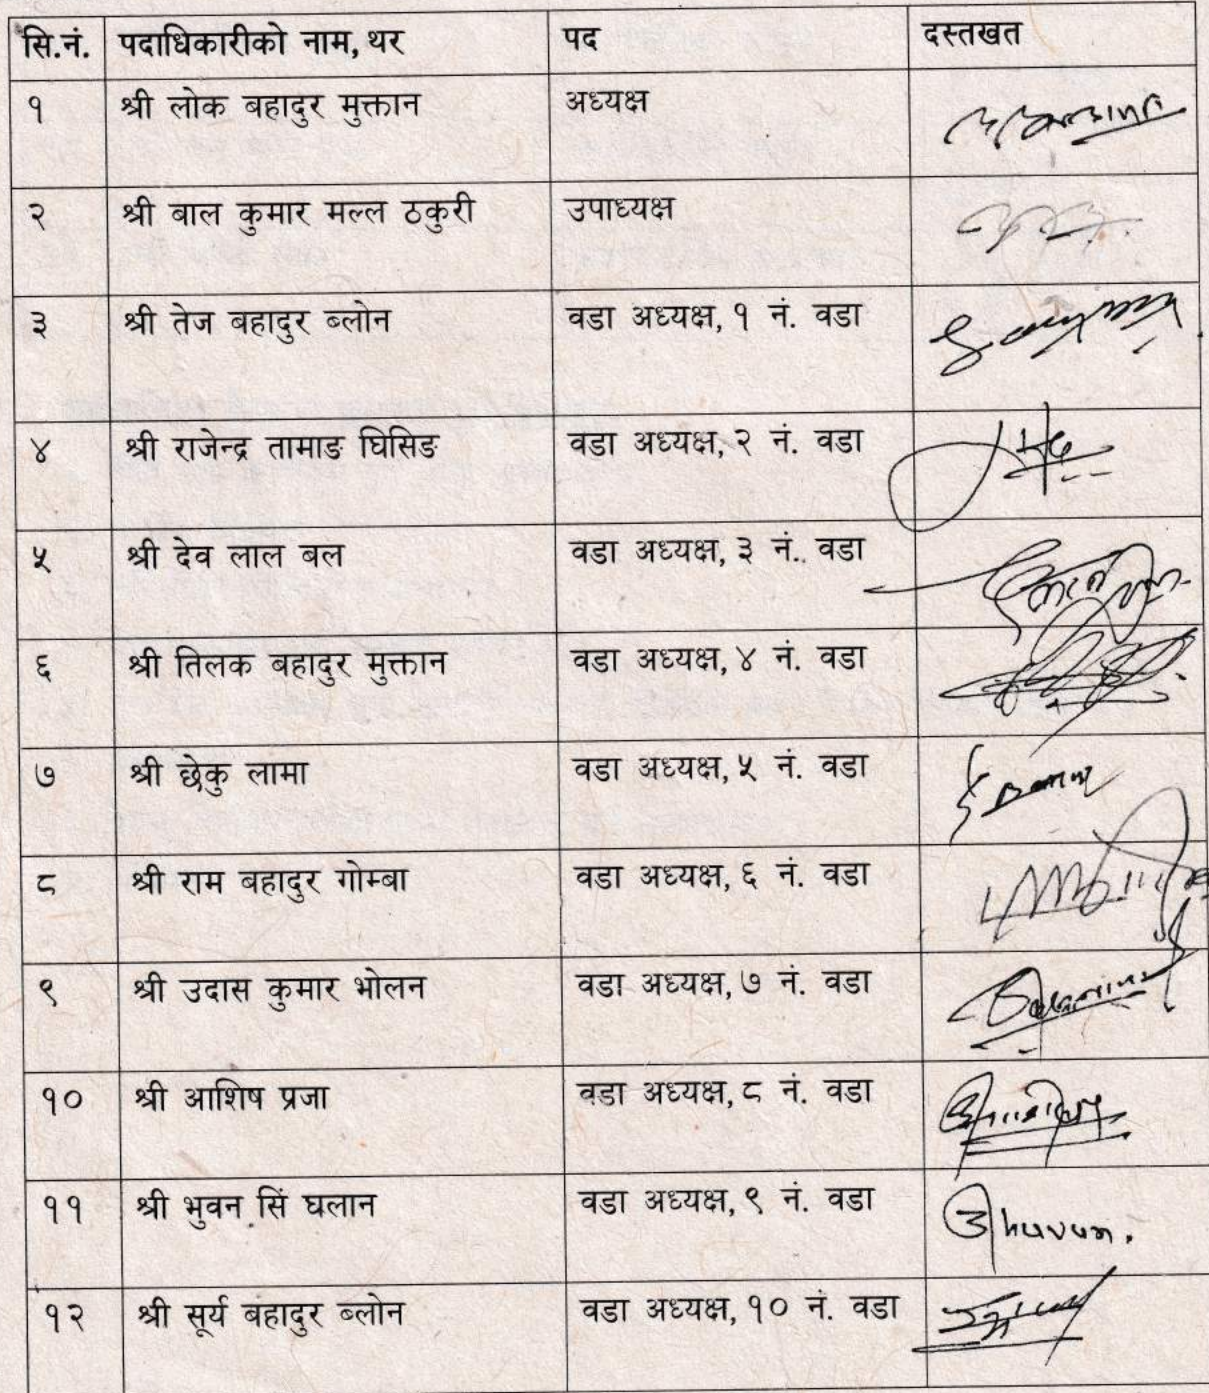 सि.नं. पदाधिकारीको नाम, थर पद दस्तखत
१ श्री लोक बहादुर मुक्तान अध्यक्ष
२ श्री बाल कुमार मल्ल ठकुरी उपाध्यक्ष
३ श्री तेज बहादुर ब्लोन वडा अध्यक्ष, १ नं. वडा
४ श्री राजेन्द्र तामाङ घिसिङ वडा अध्यक्ष, २ नं. वडा
५ श्री देव लाल बल वडा अध्यक्ष, ३ नं. वडा
६ श्री तिलक बहादुर मुक्तान वडा अध्यक्ष, ४ नं. वडा
७ श्री छेकु लामा वडा अध्यक्ष, ५ नं. वडा
८ श्री राम बहादुर गोम्बा वडा अध्यक्ष, ६ नं. वडा
९ श्री उदास कुमार भोलन वडा अध्यक्ष, ७ नं. वडा
१० श्री आशिष प्रजा वडा अध्यक्ष, ८ नं. वडा
११ श्री भुवन सिं घलान वडा अध्यक्ष, ९ नं. वडा Bhuvun.
१२ श्री सूर्य बहादुर ब्लोन वडा अध्यक्ष, १० नं. वडा